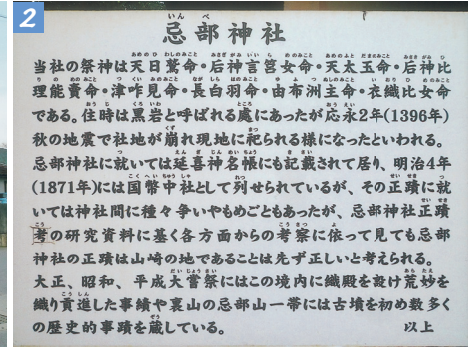 2
忌部神社
当社の祭神は天日鷲命・后神言筥女命・天太玉命・后神比
理能賣命・津咋見命・長白羽命・由布洲主命・衣織比女命
である。往時は黒岩と呼ばれる處にあったが応永2年(1396年)
秋の地震で社地が崩れ現地に祀られる様になったといわれる。
忌部神社に就いては延喜神名帳にも記載されて居り、明治4年
(1871年)には国幣中社として列せられているが、その正蹟に就
いては神社間に種々争いやもめごともあったが、忌部神社正蹟
考の研究資料に基く各方面からの考察に依って見ても忌部
神社の正蹟は山崎の地であることは先ず正しいと考えられる。
大正、昭和、平成大嘗祭にはこの境内に織殿を設け荒妙を
織り貢進した事績や裏山の忌部山一帯には古墳を初め数多く
の歴史的事蹟を蔵している。　以上